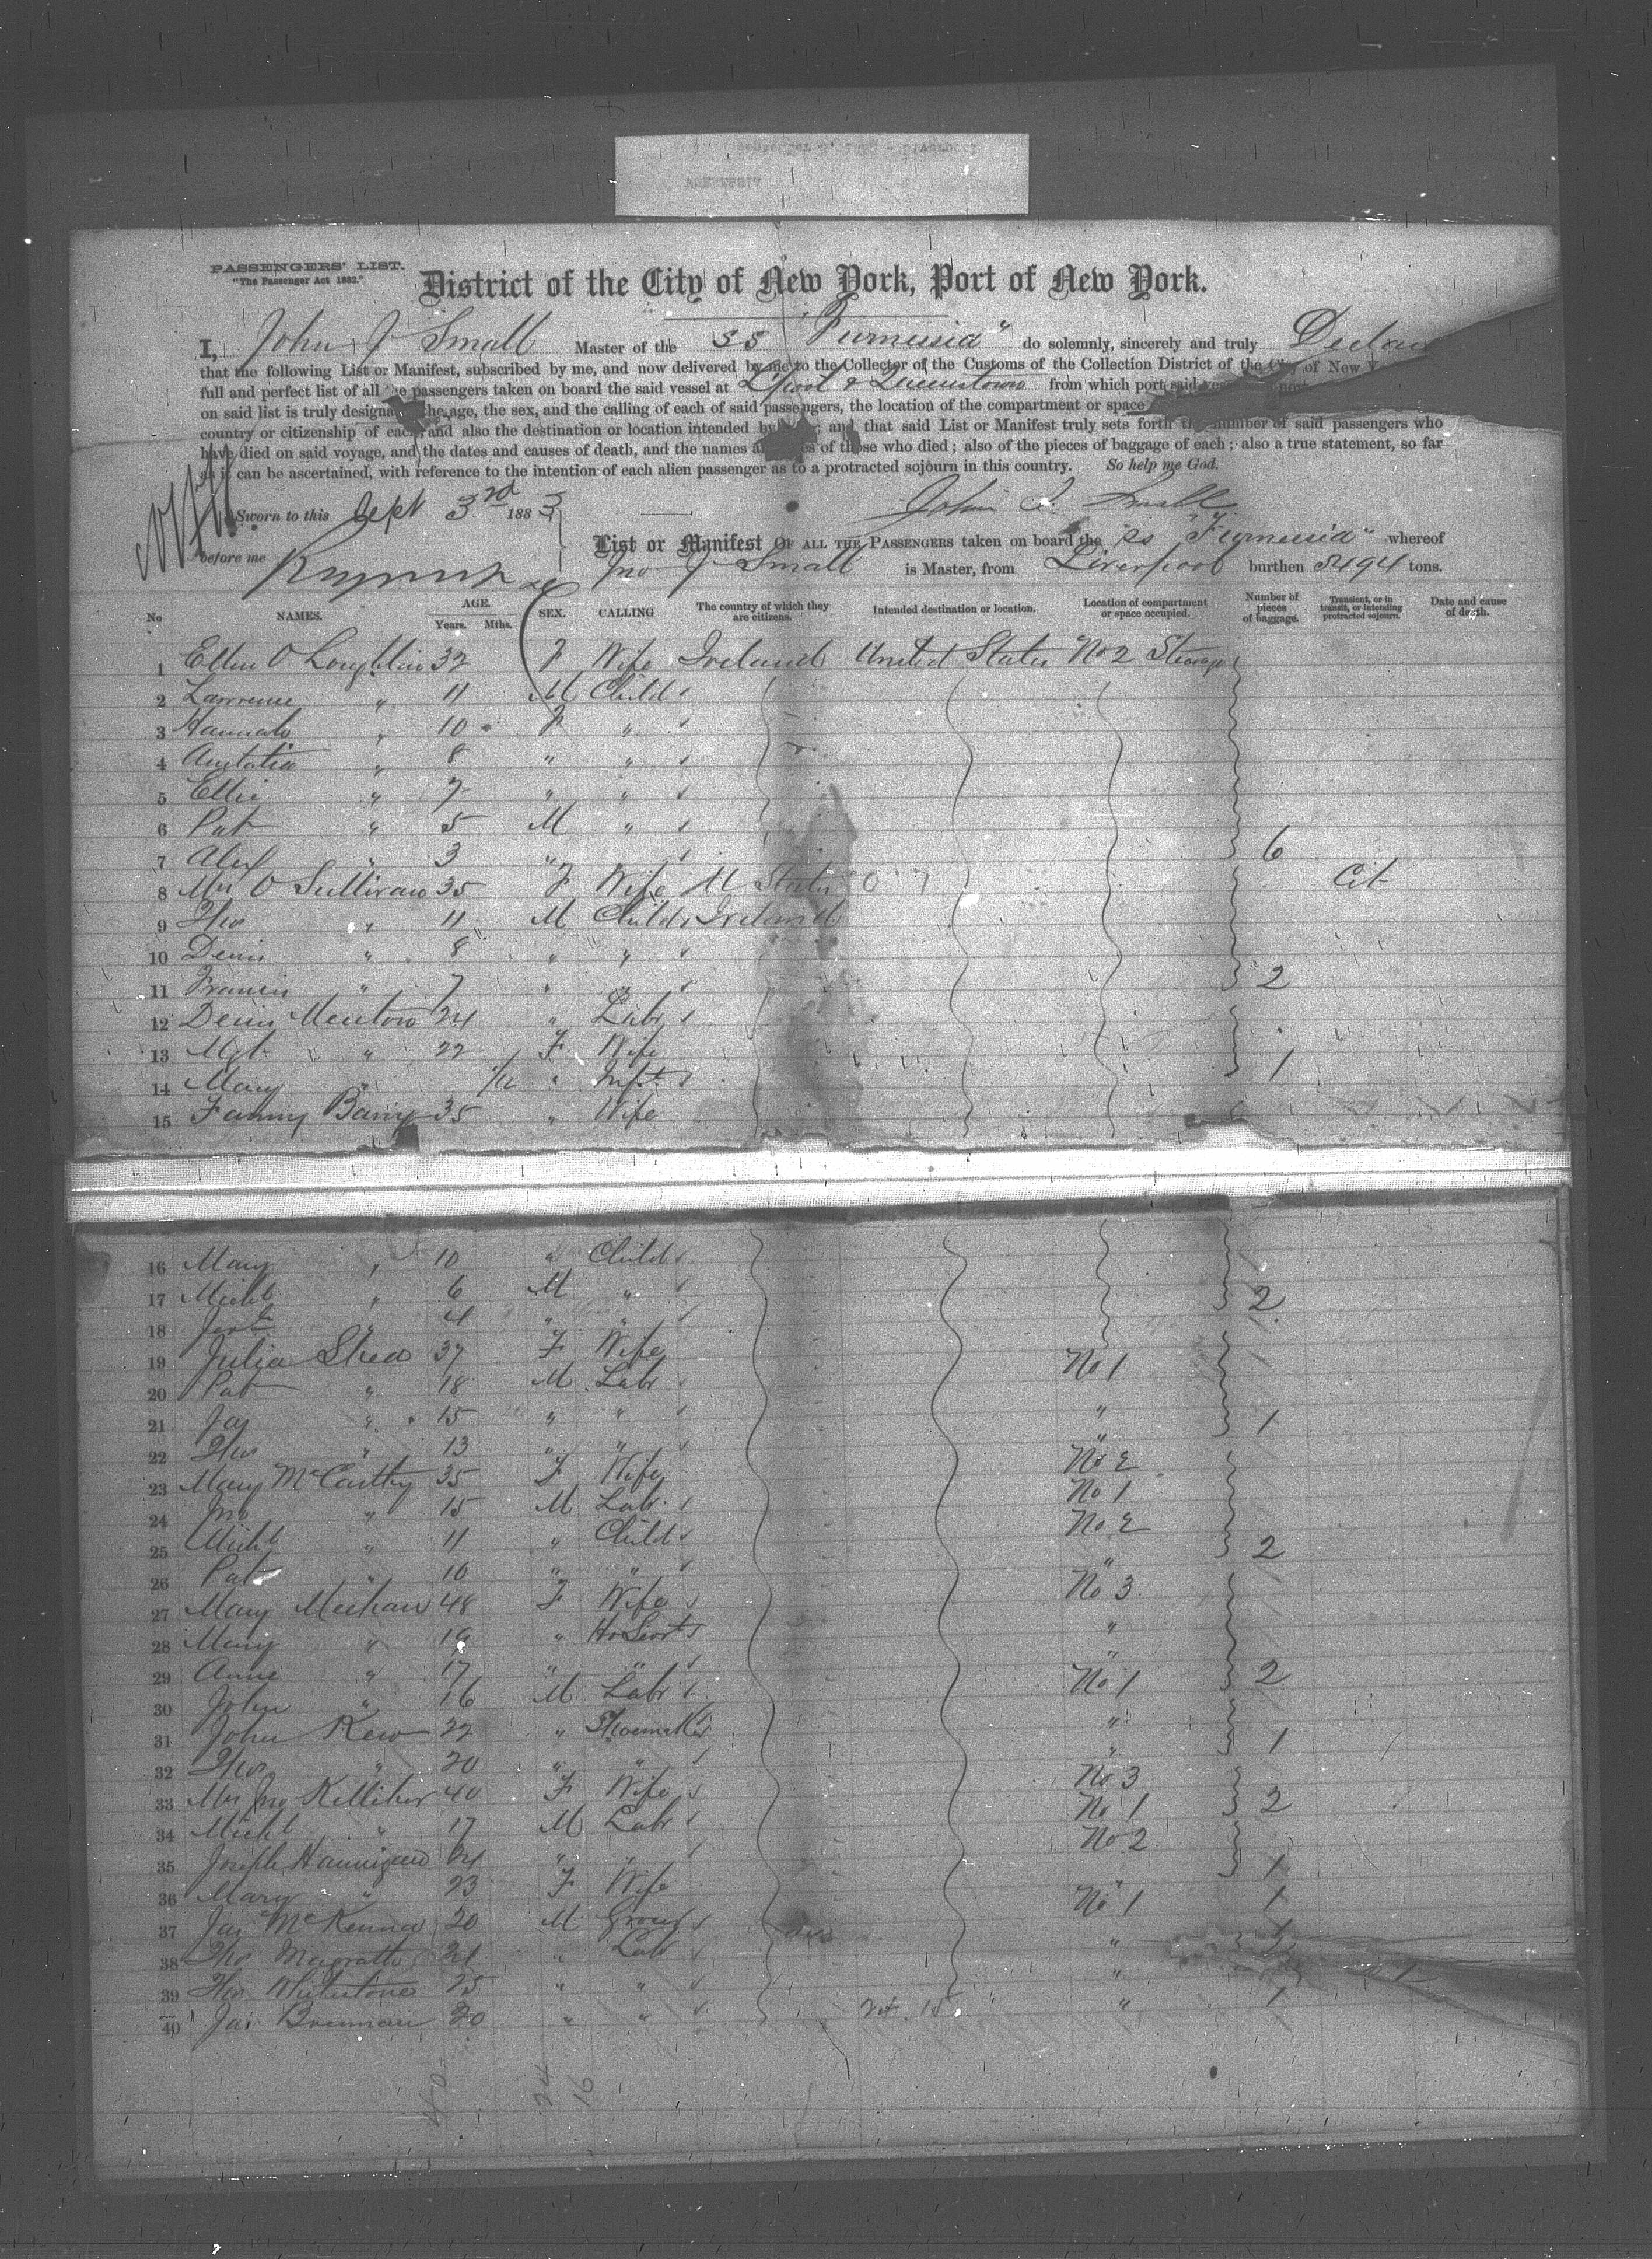 PASSENGERS' LIST.
"The Passenger Act 1882."
District of the City of New York, Port of New York.
I, John J Small Master of the SS "Furnessia" do solemnly, sincerely and truly Declare
that the following List or Manifest, subscribed by me, and now delivered by me to the Collector of the Customs of the Collection District of the City of New
full and perfect list of all the passengers taken on board the said vessel at L'pool & Queenstown from which port said
on said list is truly the age, the sex, and the calling of each of said passengers, the location of the compartment or space
country or citizenship of each, and also the destination or location intended by and that said List or Manifest truly sets forth the number of said passengers who
have died on said voyage, and the dates and causes of death, and the names of those who died; also of the pieces of baggage of each; also a true statement, so far
as it can be ascertained, with reference to the intention of each alien passenger as to a protracted sojourn in this country. So help me God.
Sworn to this Sept 3rd 1883 John J. Small
before me
List or Manifest OF ALL THE PASSENGERS taken on board the SS "Furnessia" whereof
Jno J Small is Master, from Liverpool burthen 5494 tons.
No NAMES. AGE. Years. Mths. SEX. CALLING The country of which they are citizens. Intended destination or location. Location of compartment or space occupied. Number of pieces of baggage. Transient, or in transit, or intending protracted sojourn. Date and cause of death.
1 Ellen O Loughlin 32 F Wife Ireland United States No 2 Steerage
2 Lawrence " 11 M Child
3 Hannah " 10 F "
4 Anstatia " 8 " "
5 Ellie " 7 " "
6 Pat " 5 M "
7 " 3 " " 6
8 Mrs O Sullivan 35 F Wife U States Cit
9 Tho " 11 M Child Ireland
10 Denis " 8 " "
11 Francis " 7 " " 2
12 Denis 24 " Labr
13 Mgt " 22 F Wife
14 Mary " 1/12 " Inft 1
15 Fanny Barry 35 " Wife
16 Mary " 10 " Child
17 Michl " 6 M " 2
18 " 4 " "
19 Julia Shea 37 F Wife No 1
20 Pat " 18 M Labr
21 Jas " 15 " " " 1
22 Tho " 13 " " "
23 Mary McCarthy 35 F Wife No 2
24 Jno " 15 M Labr No 1
25 Michl " 11 " Child No 2 2
26 Pat " 10 " " "
27 Mary Meehan 48 F Wife No 3
28 Mary " 19 " Ho Servt "
29 Anne " 17 " " " 2
30 John " 16 M Labr No 1
31 John Kew 22 " Shoemaker " 1
32 Thos " 20 " " "
33 Mrs Jno Kelliher 40 F Wife No 3 2
34 Michl " 17 M Labr No 1
35 Joseph Hannigan 24 " " No 2 1
36 Mary " 23 F Wife " 1
37 Jas McKenna 20 M No 1
38 Tho Magrath 21 " Labr "
39 Tho Whitstone 25 " " " 1
40 Jas Brennan 20 " " "
24
16